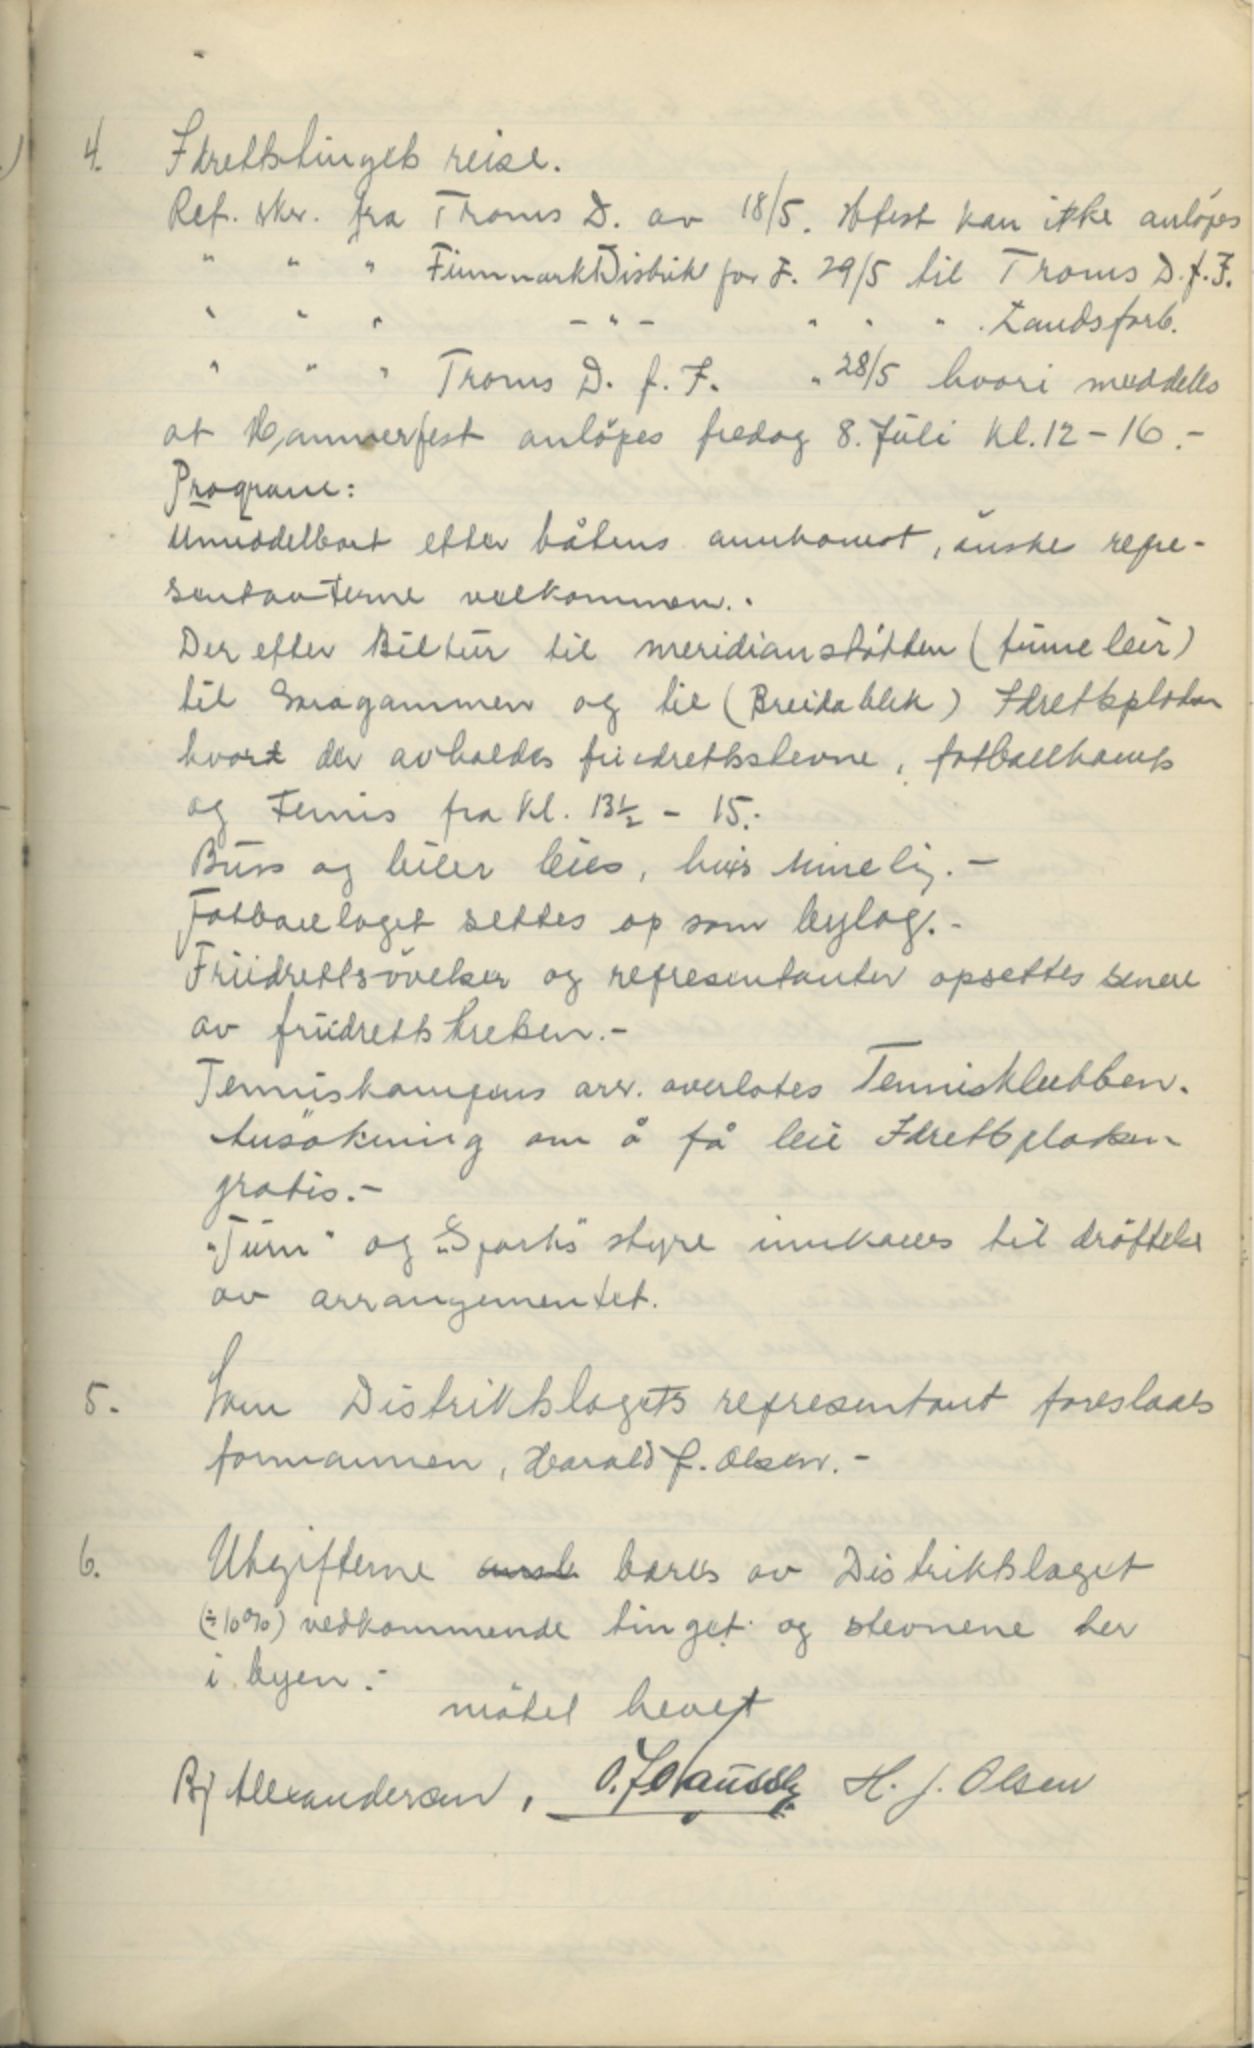 4. Idrettstingets reise.
Ref. skr. fra Troms D. av 18/5. Hfest kan ikke anlöpes
" " " Finnmark Distrik for I. 29/5 til Troms D.f.I.
" " " — " — " " " Landsforb.
" " " Troms D. f. I. " 28/5 hvori meddeles
at Hammerfest anlöpes fredag 8. Juli kl. 12 - 16.-
Program:
Umiddelbart efter båtens annkomst, önske repre-
sentanterne velkommen.-
Derefter Biltur til meridianstötten (
til og til (Breidablik) Idrettsplatsen
hvort der avholdes friidrettsstevne, fotballkamp
og Tenis fra kl. 13½ - 15.-
Buss og biler leies, hvis -
Fotballaget settes op som bylag.-
Friidrettsövelser og representanter opsettes senere
av friidrettskretsen.-
Tenniskampens arr. overlates Tennisklubben.
Ansökning om å få leie Idrettsplatsen
gratis.-
"Turn" og "Sports" styre innkalles til dröftelse
av arrangementet.
5. Som Distriktslagets representant foreslaaes
formannen, Harald J. Olsen.-
6. Utgifterne bæres av Distriktslaget
(÷10%) vedkommende tinget og stevnene her
i byen.-
mötet hevet
Bj Alexandersen, H. J. Olsen